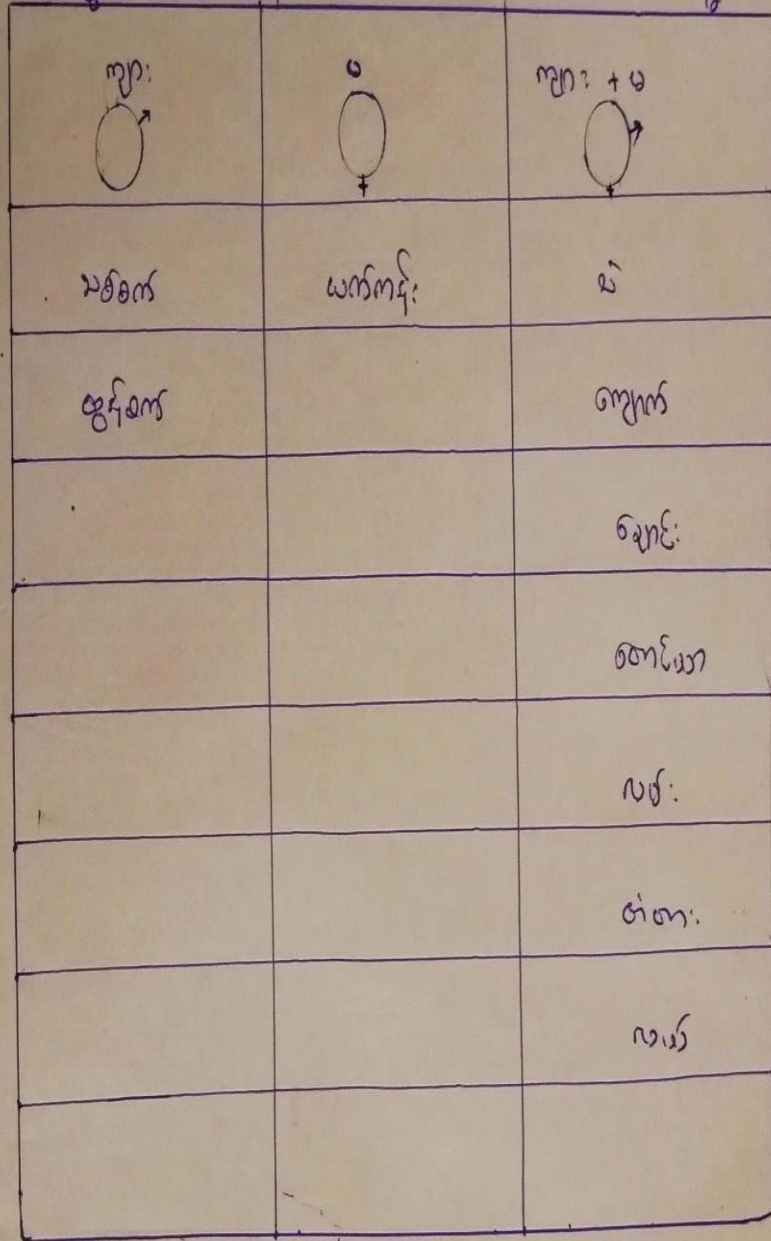 ကျား မ ကျား + မ
သစ်စက် ယက်ကန်း ပဲ
ထွန်စက် ကျောက်
ချောင်း
တောင်ယာ
လမ်း
တံတား
လယ်